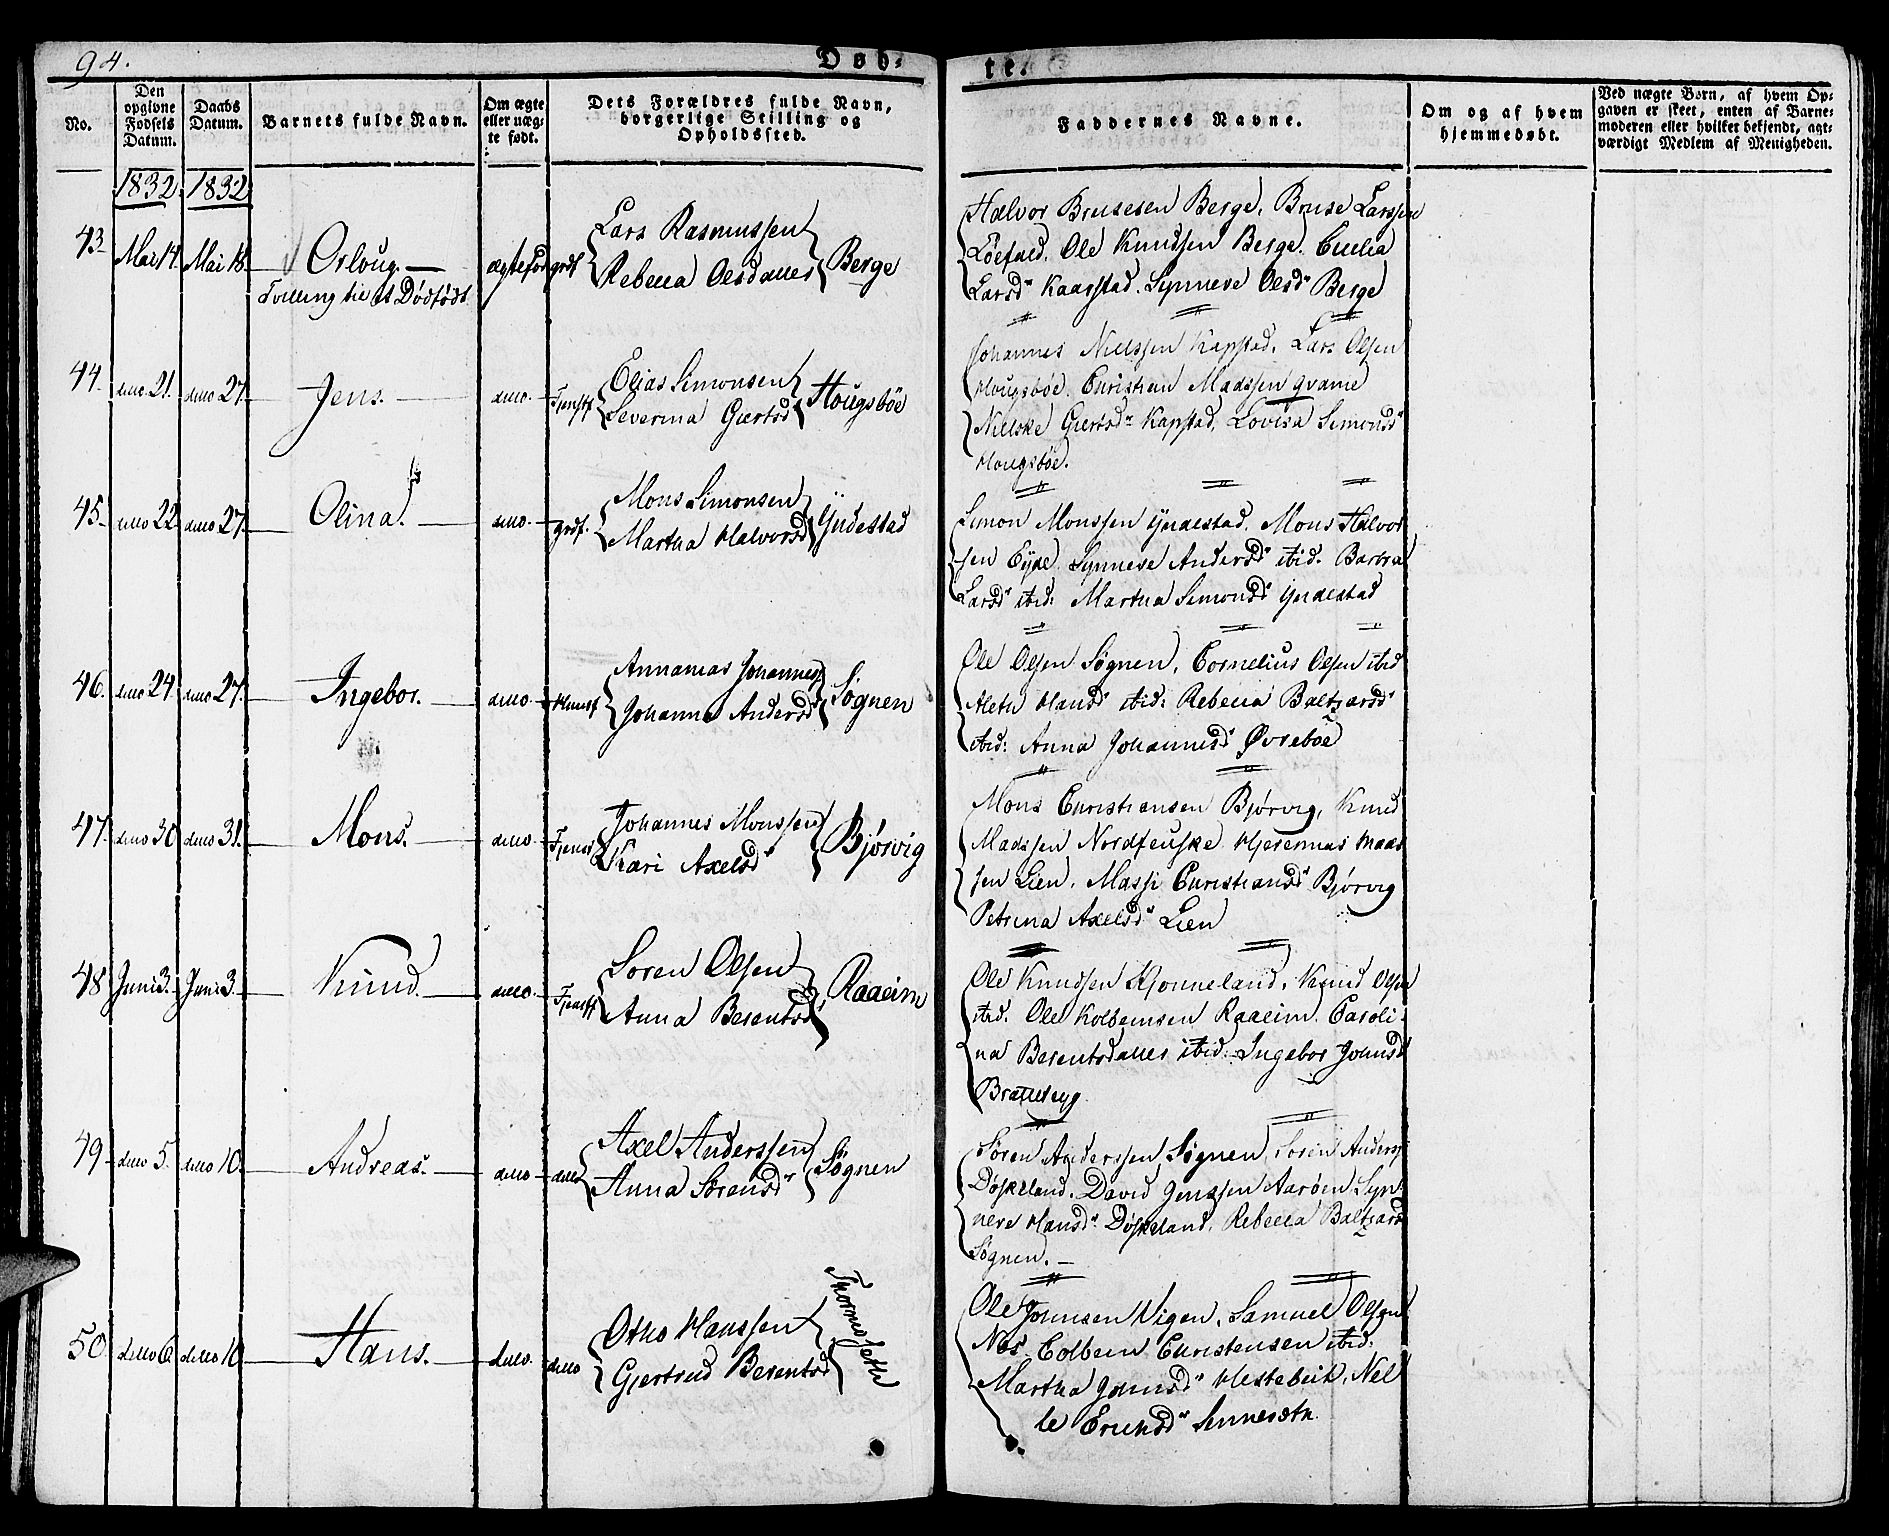 94.
Døb-
te.
No.
Den opgivne Fødsels Datum.
Daabs Datum.
Barnets fulde Navn.
Om ægte eller uæg-
te født.
Dets Forældres fulde Navn,
borgerlige Stilling og
Opholdssted.
Faddernes Navne.
Om og af hvem
hjemmedøbt.
Ved uægte Børn, af hvem Op-
gaven er skeet, enten af Barne-
moderen eller hvilket bekjendt, agt-
værdigt Medlem af Menigheden.
1832 1832
43. Mai 14. Mai 18. Orloug.
Tvilling til et Dødfødt.
ægtefød grdf
Lars Rasmussen
Rebecca Olesdatter
Berge
Halvor Brusesen Berge, Bruse Larssen
Løefald. Ole Knudsen Berge. Cecilia
Larsdr Kaarstad. Synneve Olsdr Berge
44. ditto 21. ditto 27. Jens.
ditto. Tjenstf
Elias Simonsen
Severina Giertsd
Hougsbøe
Johannes Nielssen Kapstad. Lars Olsen
Hougsbøe. Christian Madssen Qvame
Nielske Giertsdr Kapstad, Lovisa Simonsdr
Hougsbøe.
45. ditto 22. ditto 27. Olina.
ditto. grdf.
Mons Simonsen
Martha Halvorsd
Yndestad
Simon Monssen Yndestad. Mons Halvor
sen Eyde. Synneve Andersdr ibid. Barbra
Larsdr ibid: Martha Simonsdr Yndestad
46. ditto 24. ditto 27. Ingebor.
ditto. Huusf
Annanias Johannes
Johanna Andersd
Søgnen
Ole Olsen Søgnen, Cornelius Olsen ibid
Aleth Hansdr ibid: Rebecca Baltzarsdr
ibid: Anna Johannesdr Øvrebøe
47. ditto 30 ditto 31. Mons.
ditto. Tjenstf
Johannes Monssen
Kari Axelsdr
Bjørvig
Mons Christiansen Bjørvig, Knud
Madssen Nordfenske Hieremias Maas
sen Lien. Massi Christiansdr Bjørvig
Petrina Axelsdr Lien
48 Juni 3. Juni 3. Knud.
ditto. Tjenstf
Søren Olsen
Anna Berentsd
Raaeim
Ole Knudsen Kjonneland, Knud Olsen
ibid. Ole Kolbeinsen Raaeim. Caroli-
na Berentsdatter ibid: Ingebor Johnsdr
49. ditto 5. ditto 10. Andreas.
ditto ditto
Axel Anderssen
Anna Sørensdr
Søgnen
Søren Anderssen Søgnen, Søren Anders
Døskeland. David Jenssen Aarøen Syn-
neve Hansdr Døskeland. Rebecca Baltzars
Søgnen.
50. ditto 6. ditto 10. Hans.
ditto. ditto
Otho Hanssen
Gjertrud Berentsd
Ole Johnsen Vigen, Samuel Olsen
Nes. Colbein Christensen ibid:
Martha Johnsdr Hestebeit, Nel
le Erichsdr Sunnesæth